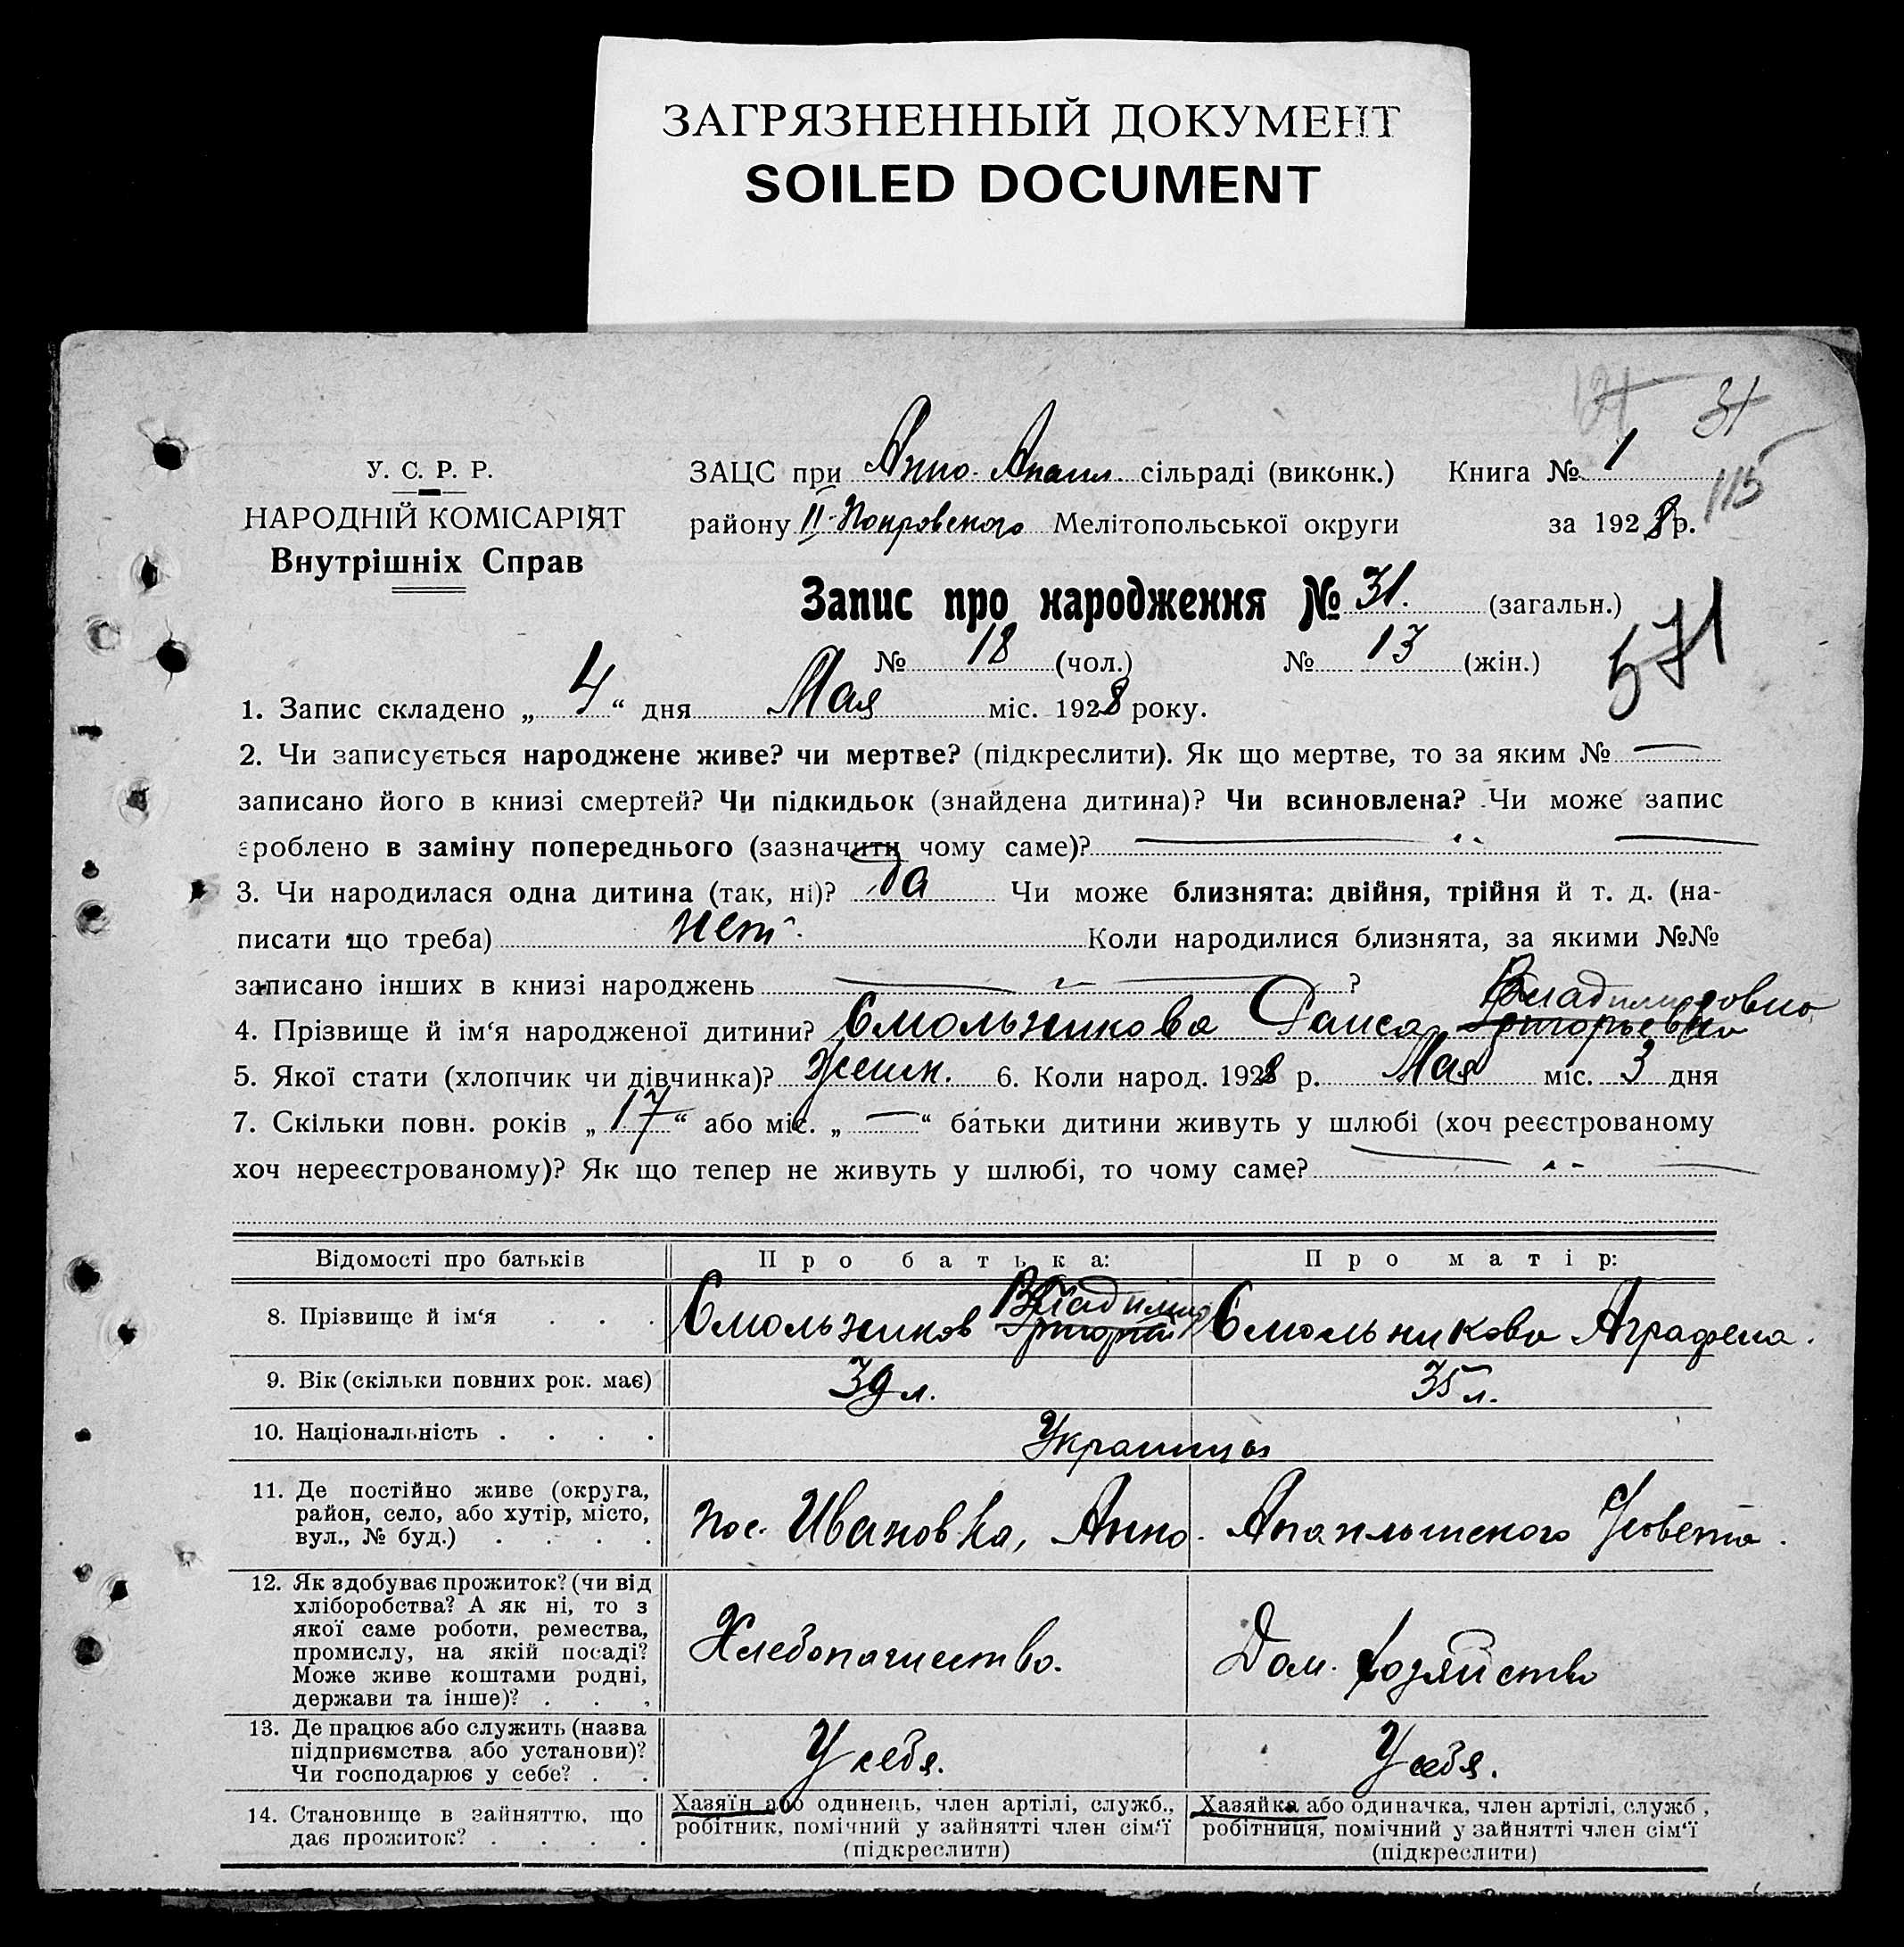 ЗАГРЯЗНЕННЫЙ ДОКУМЕНТ
SOILED DOCUMENT
121 31
У. С. Р. Р.
НАРОДНІЙ КОМІСАРІЯТ
Внутрішніх Справ
ЗАЦС при Анно-Апанл. сільраді (виконк.) Книга № 1
115
району II-Покровского Мелітопольської округи за 1928 р.
Запис про народження № 31. (загальн.)
№ 18 (чол.) № 13 (жін.)
571
1. Запис складено „ 4 “ дня Мая міс. 1928 року.
2. Чи записується народжене живе? чи мертве? (підкреслити). Як що мертве, то за яким № —
записано його в книзі смертей? Чи підкидьок (знайдена дитина)? Чи всиновлена? Чи може запис
зроблено в заміну попереднього (зазначити чому саме)? — „ —
3. Чи народилася одна дитина (так, ні)? да Чи може близнята: двійня, трійня й т. д. (на-
писати що треба) нет. Коли народилися близнята, за якими №№
записано інших в книзі народжень — „ — ?
Владимировно
4. Прізвище й ім‘я народженої дитини? Смольникова Раиса Григорьевно
5. Якої стати (хлопчик чи дівчинка)? женск. 6. Коли народ. 1928 р. Мая міс. 3 дня
7. Скільки повн. років „ 17 “ або міс. „ — “ батьки дитини живуть у шлюбі (хоч реєстрованому
хоч нереєстрованому)? Як що тепер не живуть у шлюбі, то чому саме? — „ —
Відомості про батьків Про батька: Про матір:
Владимир
8. Прізвище й ім‘я . . . Смольников Григорий Смольникова Аграфена.
9. Вік (скільки повних рок. має) 39 л. 35 л.
10. Національність . . . . Украинцы
11. Де постійно живе (округа,
район, село, або хутір, місто,
вул., № буд.) . . . .
пос. Ивановка, Анно-Апанлынского С/совета.
12. Як здобуває прожиток? (чи від
хліборобства? А як ні, то з
якої саме роботи, ремества,
промислу, на якій посаді?
Може живе коштами родні,
держави та інше)? . . .
Хлебопашество. Дом. хозяйство
13. Де працює або служить (назва
підприємства або установи)?
Чи господарює у себе? . .
У себя. У себя.
14. Становище в зайняттю, що
дає прожиток? . . . .
Хазяїн або одинець, член артілі, служб.,
робітник, помічний у зайнятті член сім‘ї
(підкреслити)
Хазяйка або одиначка, член артілі, служб.,
робітниця, помічний у зайнятті член сім‘ї
(підкреслити)